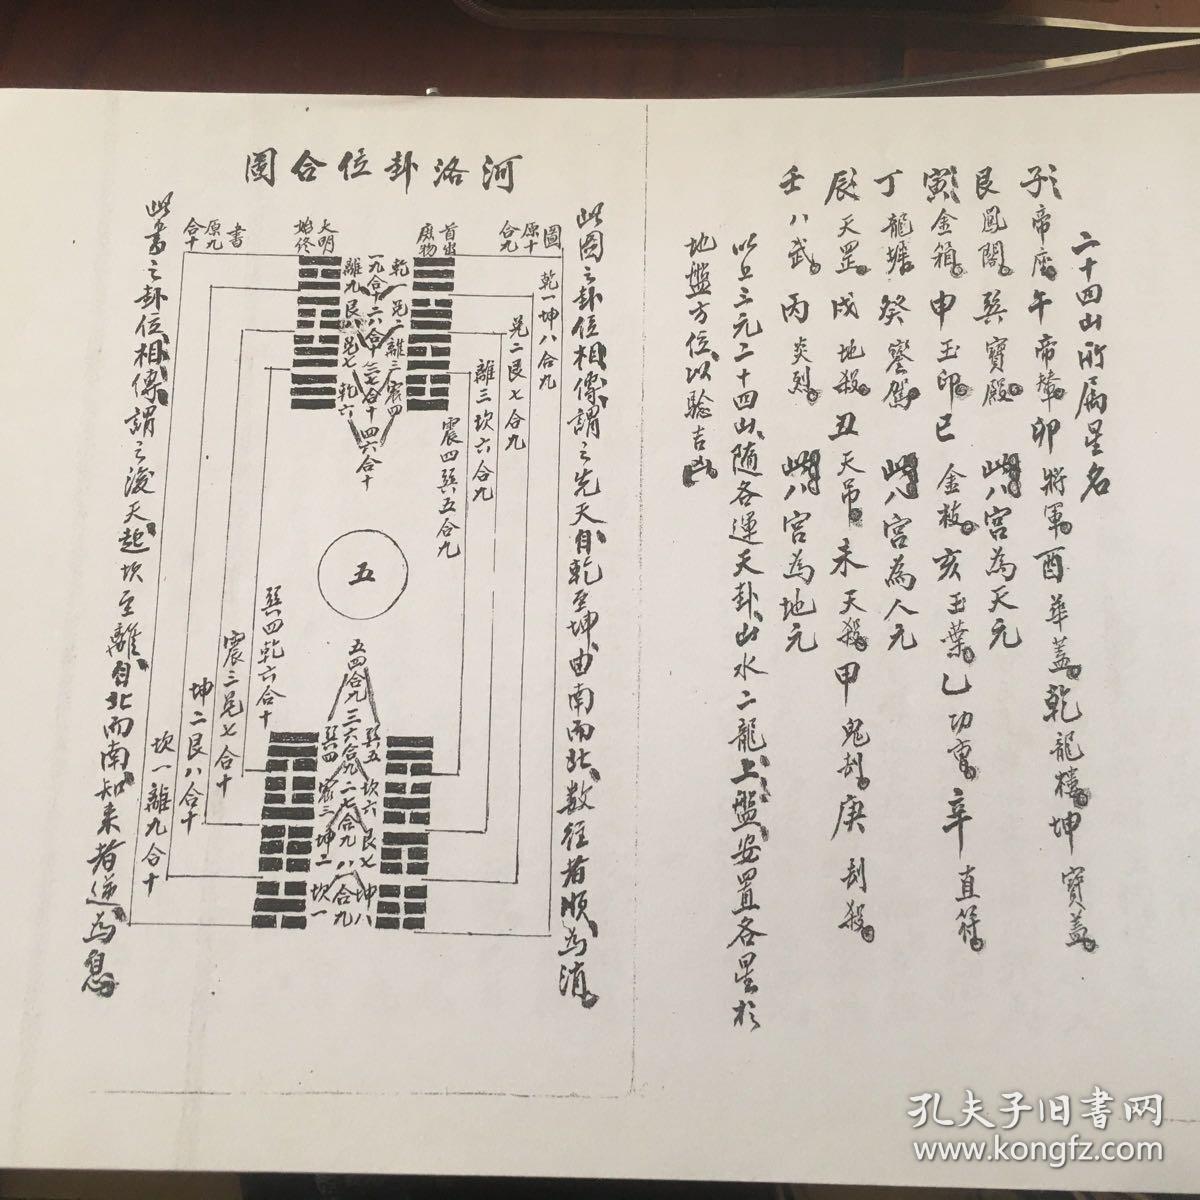 二十四山所屬星名
子帝座午帝輦卯將軍酉華蓋乾龍樓坤寶蓋
艮鳳閣巽寶殿此八宮為天元
寅金箱申玉印巳金枝亥玉葉乙功曹辛直符
丁龍墀癸鑾駕此八宮為人元
辰天罡戌地殺丑天吊未天殺甲鬼刦庚刦殺
壬八武丙炎烈此八宮為地元
以上三元二十四山隨各運天卦山水二龍上盤安置各星於
地盤方位以驗吉凶
河洛卦位合圖
此圖之卦位相傳謂之先天自乾至坤由南而北數往者順為消
圖原十合九
乾一坤八合九
兌二艮七合九
離三坎六合九
震四巽五合九
首出庶物
乾一兌二離三震四
一九合十二八合十三七合十四六合十
離九艮八兌七乾六
大明始終
五
巽五坎六艮七坤八
五四合九三六合九二七合九八一合九
巽四震三坤二坎一
巽四乾六合十
震三兌七合十
坤二艮八合十
坎一離九合十
書原九合十
此書之卦位相傳謂之後天起坎至離自北而南知來者逆為息
孔夫子旧书网
www.kongfz.com